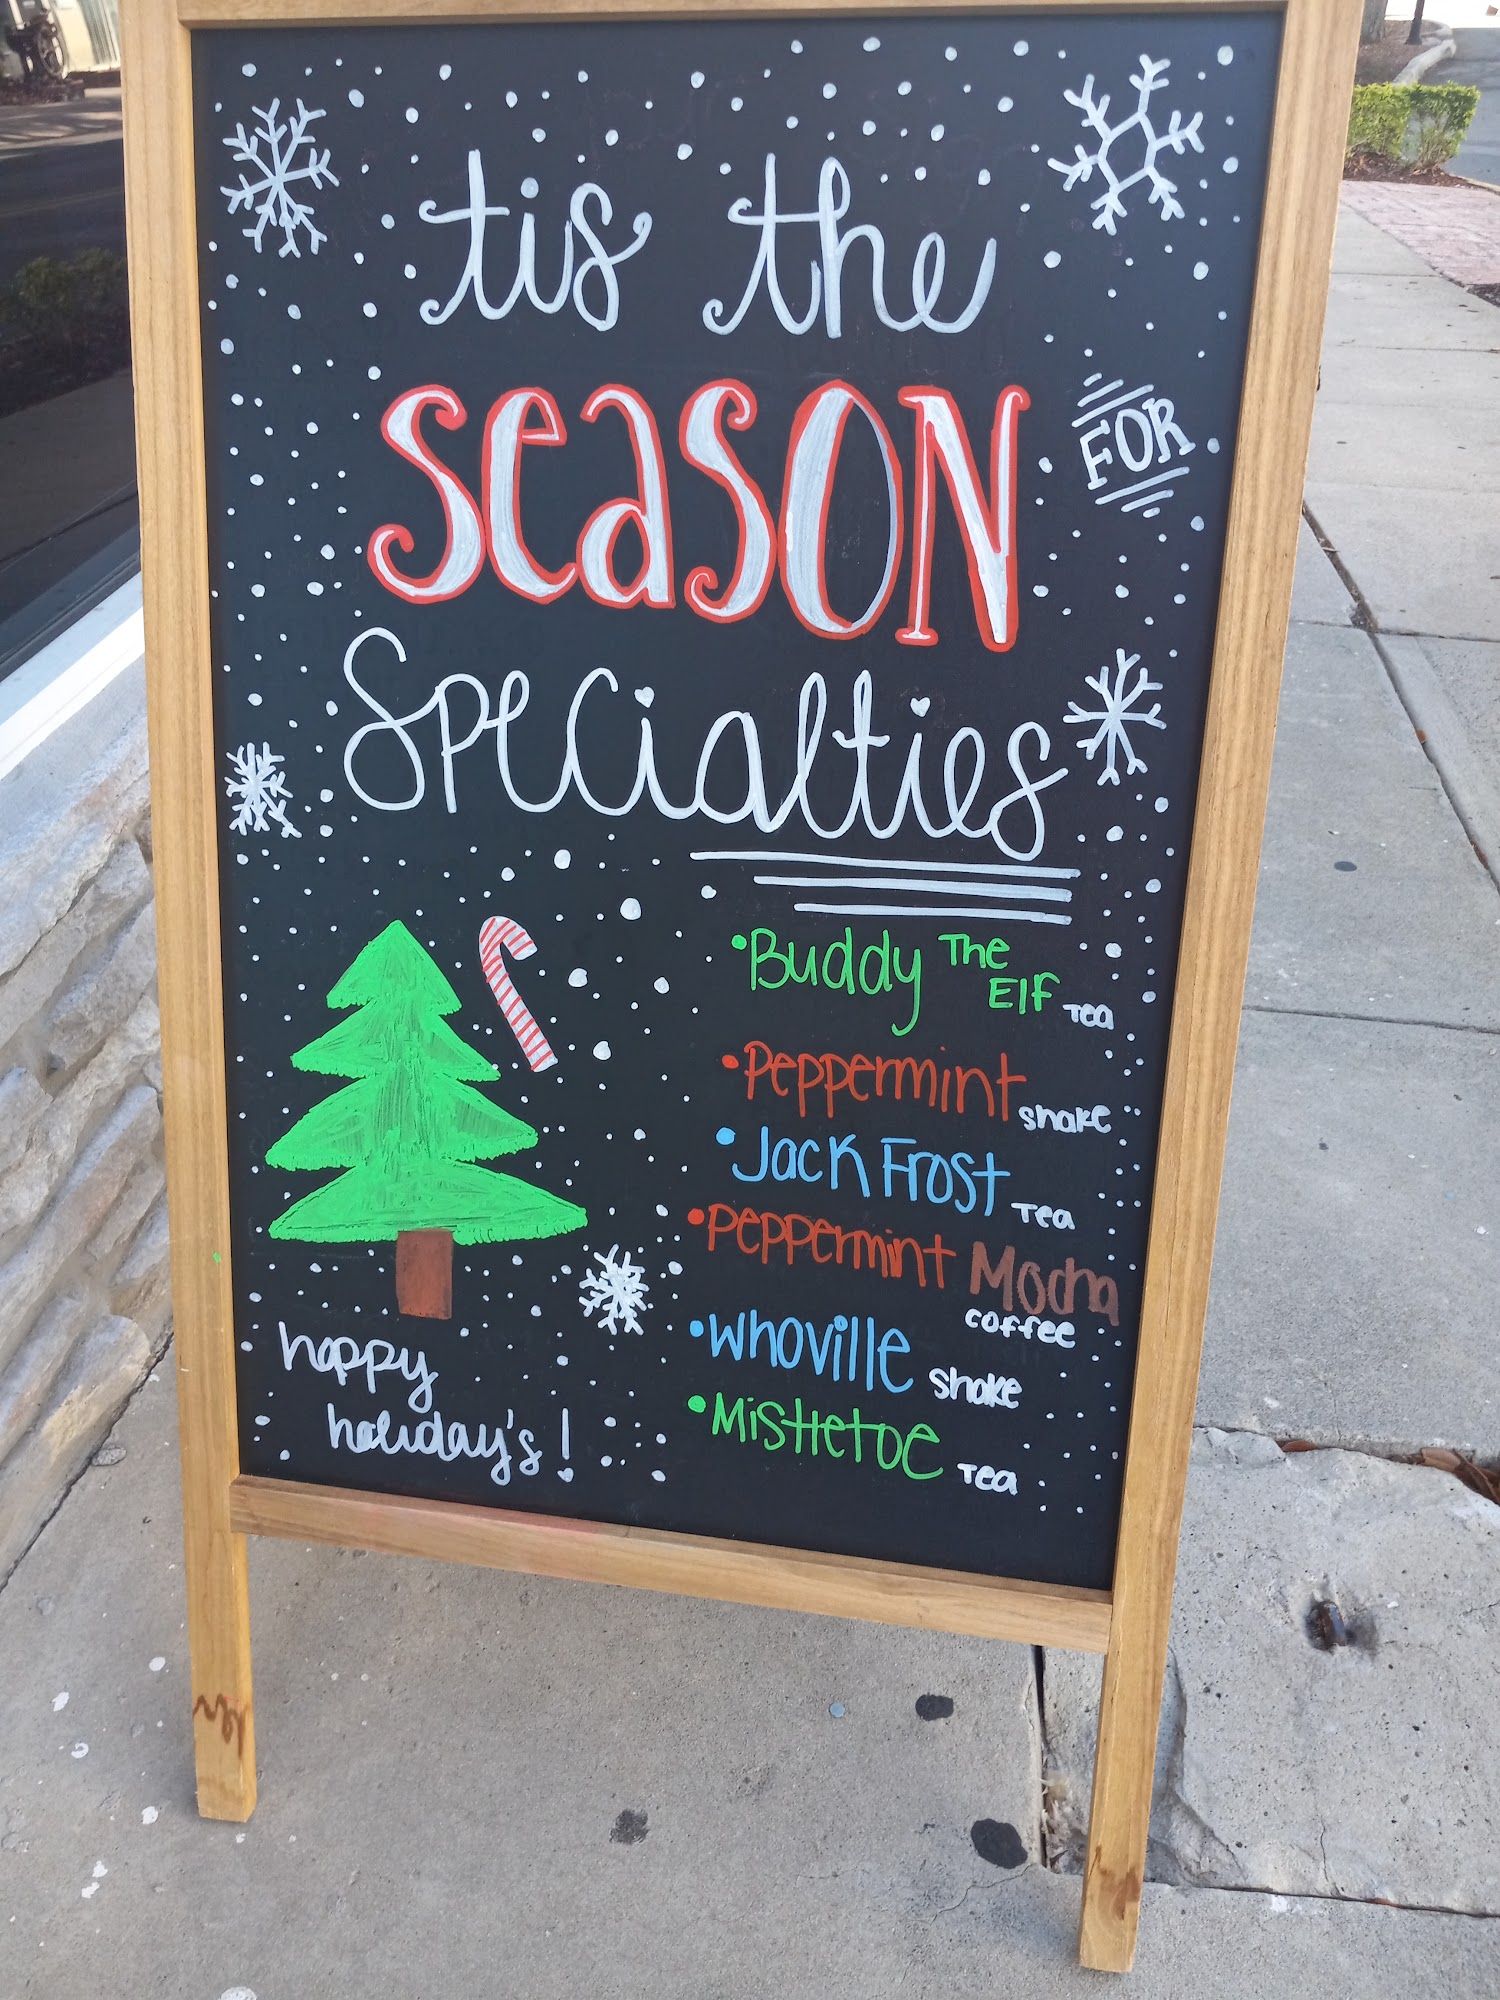 tis the
SEASON FOR
Specialties
• Buddy The Elf Tea
• Peppermint shake
• Jack Frost Tea
• Peppermint Mocha
coffee
• Whoville shake
• Mistletoe Tea
happy
holiday's!